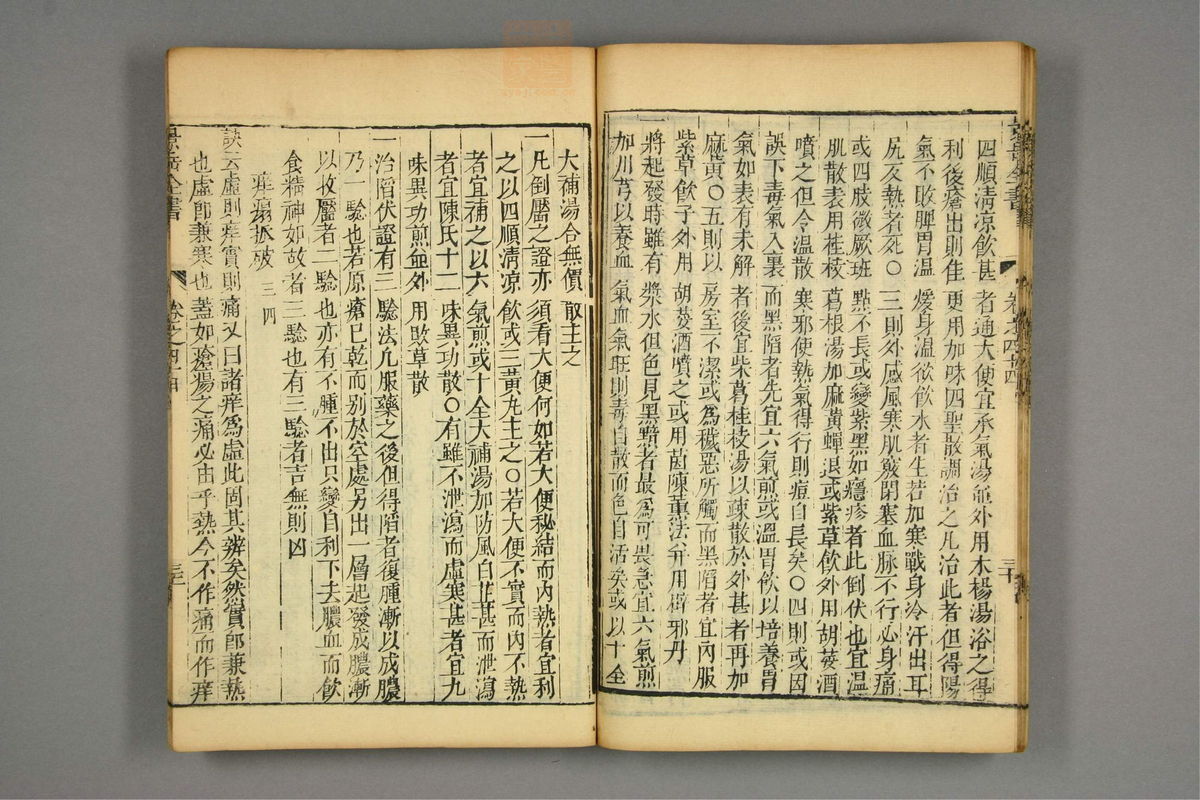 四順清涼飲甚者通大便宜承氣湯並外用水楊湯浴之得
利後瘡出則佳更用加味四聖散調治之凡治此者但得陽
氣不敗脾胃溫煖身溫欲飲水者生若加寒戰身冷汗出耳
尻反熱者死〇三則外感風寒肌竅閉塞血脉不行必身痛
或四肢微厥班點不長或變紫黑如癮疹者此倒伏也宜溫
肌散表用桂枝葛根湯加麻黃蟬退或紫草飲外用胡荽酒
噴之但令溫散寒邪使熱氣得行則痘自長矣〇四則或因
誤下毒氣入裏而黑陷者先宜六氣煎或溫胃飲以培養胃
氣如表有未解者後宜柴葛桂枝湯以疎散於外甚者再加
麻黃〇五則以房室不潔或為穢惡所觸而黑陷者宜內服
紫草飲子外用胡荽酒噴之或用茵陳薰法并用辟邪丹
一將起發時雖有漿水但色見黑黯者最為可畏急宜六氣煎
加川芎以養血氣血氣旺則毒自散而色自活矣或以十全
大補湯合無價散主之
一凡倒靨之證亦須看大便何如若大便秘結而內熱者宜利
之以四順清涼飲或三黃丸主之〇若大便不實而內不熱
者宜補之以六氣煎或十全大補湯加防風白芷甚而泄瀉
者宜陳氏十二味異功散〇有雖不泄瀉而虛寒甚者宜九
味異功煎並外用敗草散
一治陷伏證有三驗法凡服藥之後但得陷者復腫漸以成膿
乃一驗也若原瘡已乾而别於空處另出一層起發成膿漸
以收靨者二驗也亦有不腫不出只變自利下去膿血而飲
食精神如故者三驗也有三驗者吉無則凶
痒㾽抓破 三四
訣云虛則痒實則痛又曰諸痒為虛此固其辨矣然實即兼熱
也虛即兼寒也蓋如瘡瘍之痛必由乎熱今不作痛而作痒
景岳全書
卷之四十四
三十